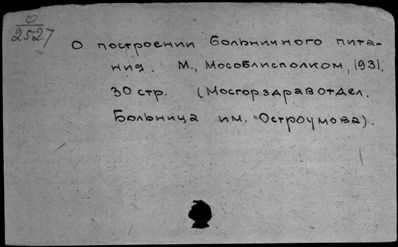 О
2527
О построении больничного пита-
ния. М., Мособлисполком, 1931.
30 стр. (Мосгорздравотдел.
Больница им. Остроумова).